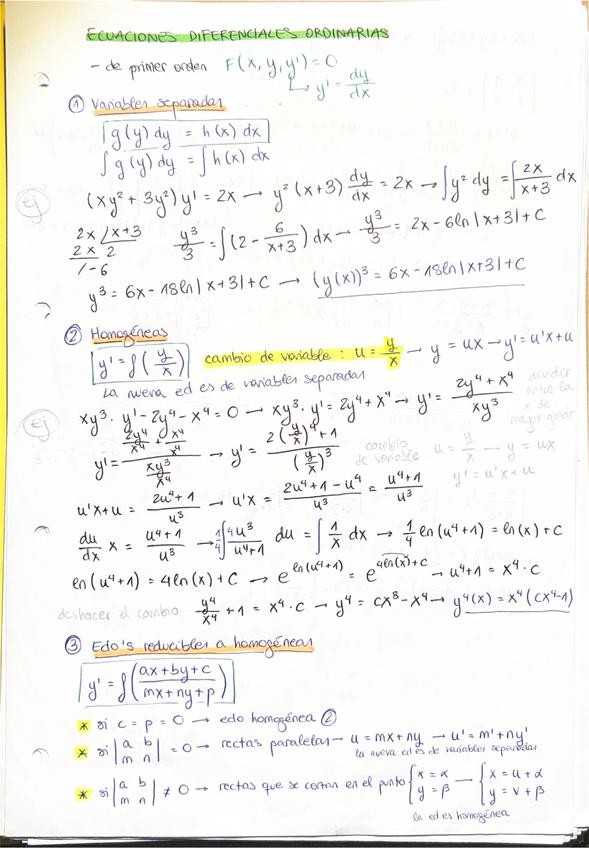 ECUACIONES DIFERENCIALES ORDINARIAS
- de primer orden F(x, y, y') = 0
↳ y' = dy/dx
① Variables separadas
g(y) dy = h(x) dx
∫ g(y) dy = ∫ h(x) dx
ej (xy² + 3y²) y' = 2x → y² (x+3) dy/dx = 2x → ∫ y² dy = ∫ 2x/(x+3) dx
2x / x+3
2x 2
/ -6
y³/3 = ∫ (2 - 6/(x+3)) dx → y³/3 = 2x - 6ln|x+3| + C
y³ = 6x - 18ln|x+3| + C → (y(x))³ = 6x - 18ln|x+3| + C
② Homogéneas
y' = f(y/x) cambio de variable : u = y/x → y = ux → y' = u'x + u
La nueva ed es de variables separadas
Ej xy³ · y' - 2y⁴ - x⁴ = 0 → xy³ · y' = 2y⁴ + x⁴ → y' = (2y⁴ + x⁴)/(xy³)
dividir entre la x de mayor grado
y' = (2y⁴/x⁴ + x⁴/x⁴)/(xy³/x⁴) → y' = (2(y/x)⁴ + 1)/((y/x)³)
cambio de variable u = y/x → y = ux
y' = u'x + u
u'x + u = (2u⁴+1)/u³ → u'x = (2u⁴ + 1 - u⁴)/u³ = (u⁴+1)/u³
du/dx x = (u⁴+1)/u³ → 1/4 ∫ 4u³/(u⁴+1) du = ∫ 1/x dx → 1/4 ln(u⁴+1) = ln(x) + C
ln(u⁴+1) = 4ln(x) + C → e^(ln(u⁴+1)) = e^(4ln(x)+C) → u⁴+1 = x⁴ · C
deshacer el cambio y⁴/x⁴ + 1 = x⁴ · C → y⁴ = Cx⁸ - x⁴ → y⁴(x) = x⁴(Cx⁴-1)
③ Edo's reducibles a homogéneas
y' = f((ax+by+c)/(mx+ny+p))
* si c = p = 0 → edo homogénea ②
* si |a b; m n| = 0 → rectas paralelas → u = mx + ny → u' = m' + ny'
la nueva ed es de variables separadas
* si |a b; m n| ≠ 0 → rectas que se cortan en el punto {x = α; y = β → {x = u + α; y = v + β
la ed es homogénea